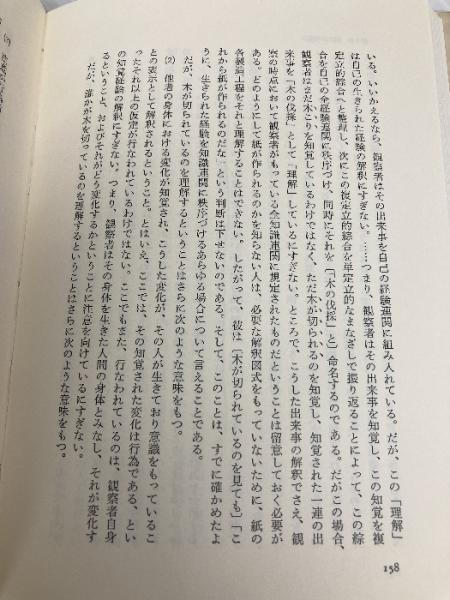 いる。いいかえるなら、観察者はその出来事を自己の経験連関に組み入れている。だが、この「理解」
は自己の生きられた経験の解釈にすぎない。……つまり、観察者はその出来事を知覚し、この知覚を複
定立的綜合へと整理し、次にこの複定立的綜合を単定立的なまなざしで振り返ることによって、この綜
合を自己の全経験連関に秩序づけ、同時にそれを(「木の伐採」と)命名するのである。だがこの場合、
観察者はまだ木こりを知覚しているわけではなく、ただ木が切られるのを知覚し、知覚された一連の出
来事を「木の伐採」として「理解」しているにすぎない。ところで、こうした出来事の解釈でさえ、観
察の時点において観察者がもっている全知識連関に規定されたものだということは留意しておく必要が
ある。どのようにして紙が作られるのかを知らない人は、必要な解釈図式をもっていないために、紙の
各製造工程をそれと理解することはできない。したがって、彼は(木が切られているのを見ても)「こ
れから紙が作られるのだな」という判断は下せないのである。そして、このことは、すでに確かめたよ
うに、生きられた経験を知識連関に秩序づけるあらゆる場合について言えることである。
だが、木が切られているのを理解するということはさらに次のような意味をもつ。
(2) 他者の身体における変化が知覚され、こうした変化が、その人が生きており意識をもっているこ
との表示として解釈されるということ。とはいえ、ここでは、その知覚された変化は行為である、とい
ったそれ以上の仮定が行なわれているわけではない。ここでもまた、行なわれているのは、観察者自身
の知覚経験の解釈にすぎない。つまり、観察者はその身体を生きた人間の身体とみなし、それが変化す
るということ、およびそれがどう変化するかということに注意を向けているにすぎない。
だが、誰かが木を切っているのを理解するということはさらに次のような意味をもつ。
158